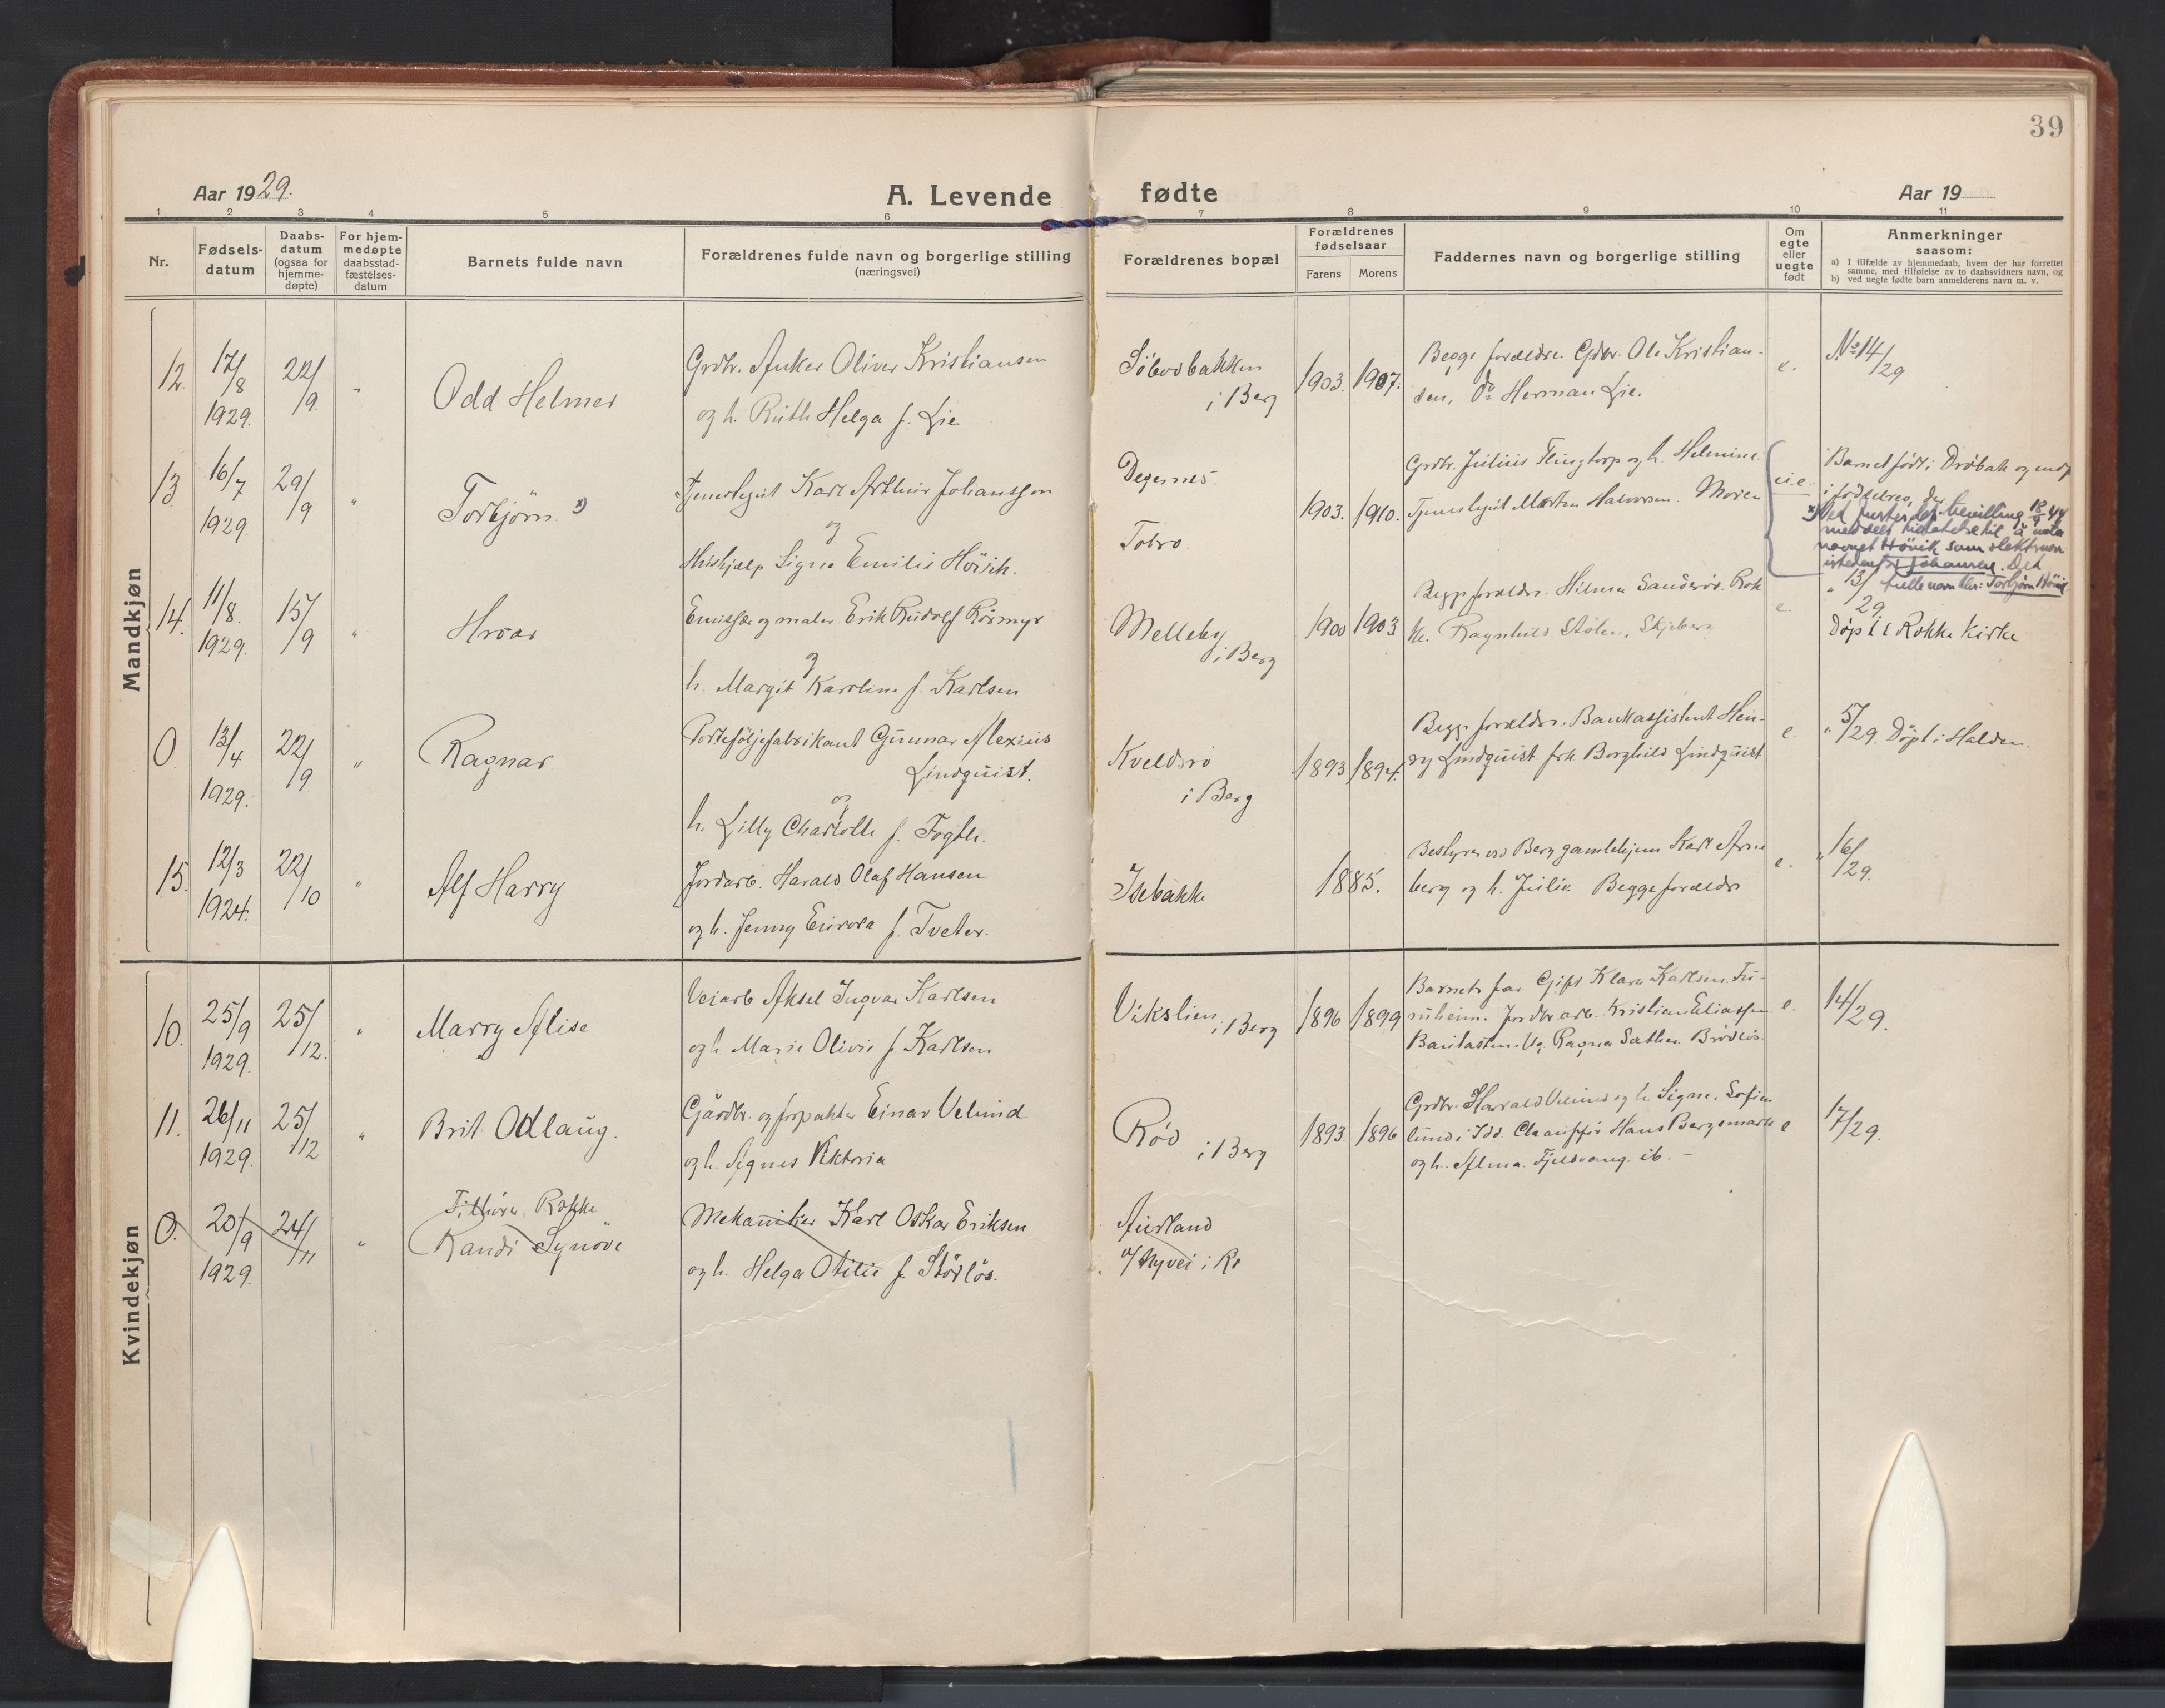 39
Aar 1929.
A. Levende fødte
Aar 19
1 2 3 4 5 6 7 8 9 10 11
Nr.
Fødsels-
datum
Daabs-
datum
(ogsaa for
hjemme-
døpte)
For hjem-
medøpte
daabsstad-
fæstelses-
datum
Barnets fulde navn
Forældrenes fulde navn og borgerlige stilling
(næringsvei)
Forældrenes bopæl
Forældrenes
fødselsaar
Farens Morens
Faddernes navn og borgerlige stilling
Om
egte
eller
uegte
født
Anmerkninger
saasom:
a) I tilfælde av hjemmedaab, hvem der har forrettet
samme, med tilføielse av to daabsvidners navn, og
b) ved uegte fødte barn anmelderens navn m. v.
Mandkjøn
12. 17/8 1929. 22/9. "
Odd Helmer
Grdbr. Anker Oliver Kristiansen
og h. Ruth Helga f. Lie
i Berg
1903. 1907.
Begge forældre. Gdbr. Ole Kristian-
sen, Do Herman Lie.
e.
No 14/29
13 16/7 1929. 29/9 "
Torbjørn x)
Tjenestegut Karl Arthur Johansson
og
Hushjælp Signe Emilie
Degernes
Tobro
1903. 1910.
Grdbr. Julius og h. Helmine.
Tjenestegut Morten Halvorsen. Moren
u.e.
Barnet født i Drøbak og
i fødselsreg. der
x) Ved bevilling 18/9 44
meddelt tillatelse til å
navnet Høvik som slektsnavn
istedenfor Johansen. Det
fulle navn blir: Torbjørn Høvik
14. 11/8. 1929. 15/9 "
Hroar
og maler Erik Rudolf Rørmyr
og
h. Margit Karoline f. Karlsen
Melleby
i Berg
1900 1903
Begge forældre. Hilma Sanderød. Rok
ke. Ragnhild Stølen, Skjeberg
e.
" 13/29.
Døpt i Rokke Kirke
0 13/4 1929. 22/9 "
Ragnar
Porteføljefabrikant Gunnar Alexius
Lindquist.
og
h. Lilly Charlotte f. Fogth.
Kveldsro
i Berg
1893 1894.
Begge forældre. Bankassistent Hen-
ry Lindquist frk Borghild Lindquist
e.
" 5/29. Døpt i Halden.
15. 12/3 1924. 22/10 "
Alf Harry
Jordarb. Harald Olaf Hansen
og h. Jenny f. Tveter.
Isebakke
1885.
Bestyrer ved Berg gamlehjem Karl Arne
berg og h. Julie. Begge forældre
e.
" 16/29.
Kvindekjøn
10. 25/9 1929. 25/12. "
Marry Alise
Veiarb Aksel Ingvar Karlsen
og h. Marie Olivie f. Karlsen
Vikslien i Berg
1896 1899
Barnets far Gift Klara Karlsen. Fu-
ruheim. Jordbr. arb. Kristian Eliassen
Ug. Ragna Sæther. Brødløs.
e.
14/29.
11. 26/11 1929. 25/12 "
Brit Odlaug.
Gårdbr. og forpakter Einar Velund
og h. Agnes Viktoria
Rød i Berg
1893. 1896
Grdbr. Harald Velund og h. Signe. Sofien
lund i Idd. Chauffør Hans
og h. Alma. Fjeldvang. ib. –
e
17/29.
0. 20/9 1929. 24/11 "
Tilhører Rokke
Randi Synøve
Mekaniker Karl Oskar Eriksen
og h. Helga Otilie f. Størløs.
Aierland